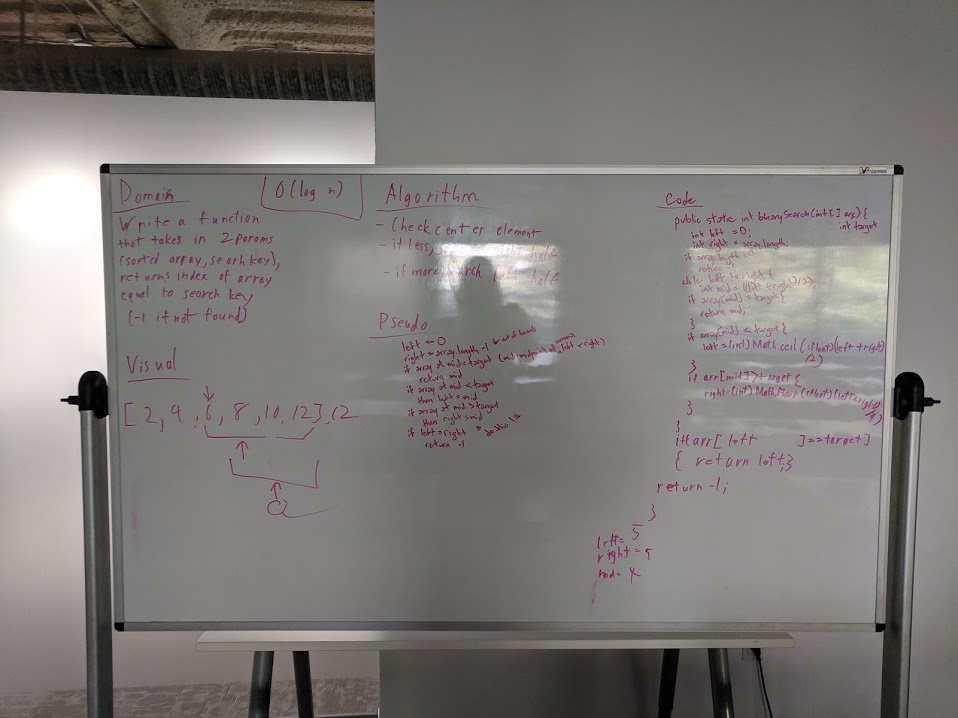 Domain
Write a function
that takes in 2 params
(sorted array, searh key),
returns index of array
equal to search key
(-1 if not found)
O(log n)
Visual
[2, 4, 6, 8, 10, 12], 12
Algorithm
- Check center element
- if less, half
- if more, half
Pseudo
left ← 0
right ← array.length -1 ← out of bounds
if array at mid = target (mid = midpoint of left + right)
return mid
if array at mid < target
then left = mid
if array at mid > target
then right = mid
if left = right * do this 1st
return -1
Code
public static int binarySearch(int[] arr) {
int target
int left = 0;
int right = array.length;
if array.length = 0;
return
while left != right {
int mid = (left + right)/2;
if array[mid] = target {
return mid;
}
if array[mid] < target {
left = (int) Math.ceil (float)(left + right)
/2)
}
if arr[mid] > target {
right = (int) Math.floor (float)(left + right)
}
}
if(arr[ left ] == target]
{ return left;}
return -1;
}
left = 5
right = 5
mid = 4